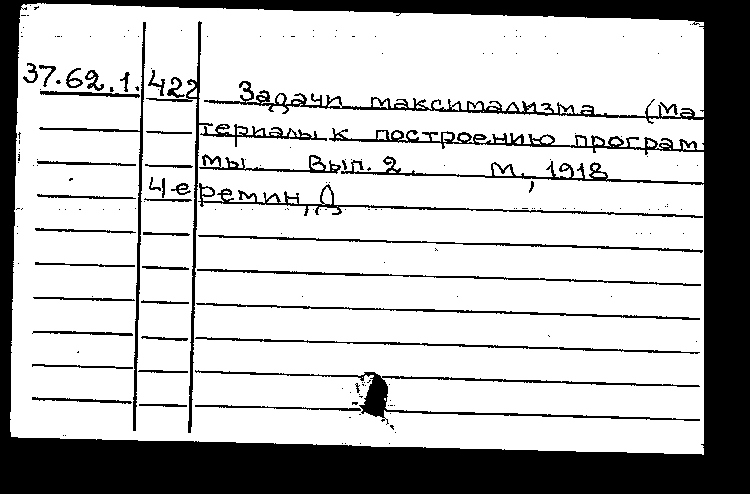 37.62.1. 422 Задачи максимализма. (Ма-
териалы к построению програм-
мы. Вып. 2. М., 1918
Черемин,